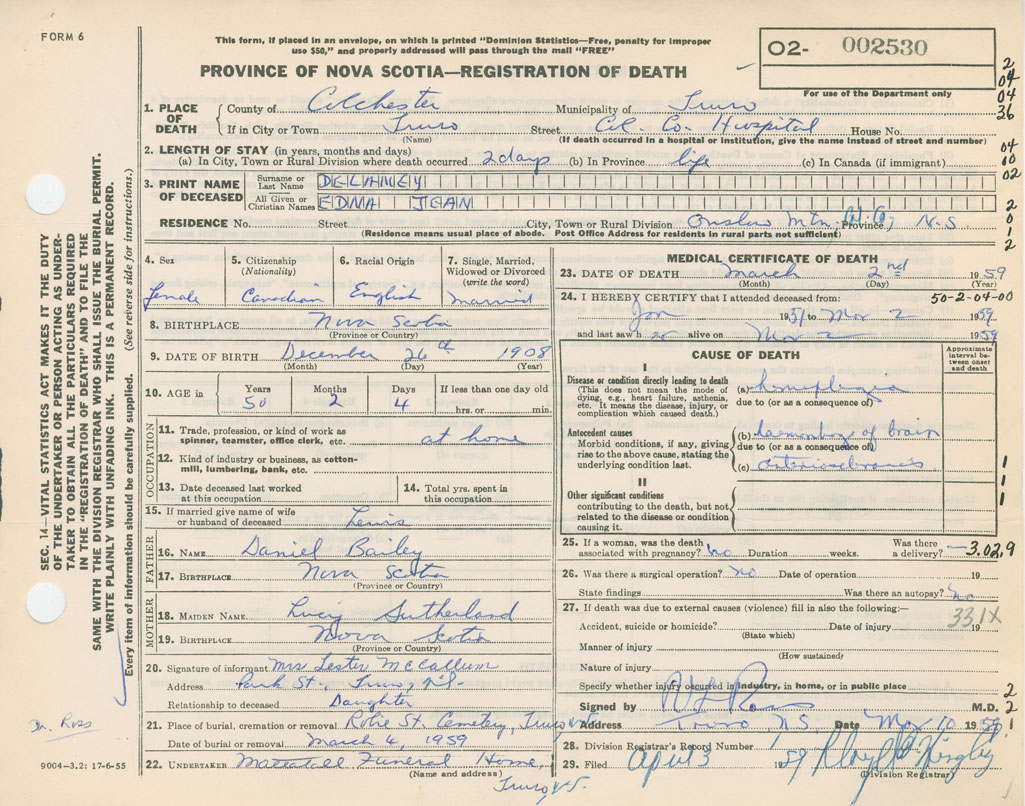 FORM 6
This form, if placed in an envelope, on which is printed "Dominion Statistics—Free, penalty for improper
use $50," and properly addressed will pass through the mail "FREE"
O2- 002530
PROVINCE OF NOVA SCOTIA—REGISTRATION OF DEATH
For use of the Department only
2
04
04
36
04
10
02
2
0
1
2
1. PLACE OF DEATH
County of Colchester Municipality of Truro
If in City or Town Truro Street Col. Co. Hospital House No.
(Name) (If death occurred in a hospital or institution, give the name instead of street and number)
2. LENGTH OF STAY (in years, months and days)
(a) In City, Town or Rural Division where death occurred 2 days (b) In Province life (c) In Canada (if immigrant)
3. PRINT NAME OF DECEASED
Surname or Last Name DELANEY
All Given or Christian Names EDNA JEAN
RESIDENCE No. Street City, Town or Rural Division Onslow Mtn, Province N.S
(Residence means usual place of abode. Post Office Address for residents in rural parts not sufficient)
4. Sex 5. Citizenship (Nationality) 6. Racial Origin 7. Single, Married, Widowed or Divorced (write the word)
female Canadian English Married
8. BIRTHPLACE Nova Scotia
(Province or Country)
9. DATE OF BIRTH December 26th 1908
(Month) (Day) (Year)
10. AGE in Years Months Days If less than one day old
50 2 4 hrs. or min.
OCCUPATION
11. Trade, profession, or kind of work as spinner, teamster, office clerk, etc. at home
12. Kind of industry or business, as cotton-mill, lumbering, bank, etc.
13. Date deceased last worked at this occupation
14. Total yrs. spent in this occupation
15. If married give name of wife or husband of deceased Lewis
FATHER
16. NAME Daniel Bailey
17. BIRTHPLACE Nova Scotia
(Province or Country)
MOTHER
18. MAIDEN NAME Lucy Sutherland
19. BIRTHPLACE Nova Scotia
(Province or Country)
20. Signature of informant Mrs Lester McCallum
Address Park St., Truro, N.S.
Relationship to deceased Daughter
21. Place of burial, cremation or removal Robie St. Cemetery, Truro, N.S
Date of burial or removal March 4, 1959
22. UNDERTAKER Mattatall Funeral Home,
(Name and address) Truro, N.S.
MEDICAL CERTIFICATE OF DEATH
23. DATE OF DEATH March 2nd 1959
(Month) (Day) (Year)
24. I HEREBY CERTIFY that I attended deceased from: 50-2-04-00
Jan 1937 to Mar 2 1959
and last saw her alive on Mar 2 1959
CAUSE OF DEATH
Approximate interval between onset and death
I
Disease or condition directly leading to death
(This does not mean the mode of dying, e.g., heart failure, asthenia, etc. It means the disease, injury, or complication which caused death.)
(a) hemiplegia
due to (or as a consequence of)
Antecedent causes
Morbid conditions, if any, giving rise to the above cause, stating the underlying condition last.
(b) of brain
due to (or as a consequence of)
(c) arteriosclerosis
II
Other significant conditions
contributing to the death, but not related to the disease or condition causing it.
1
1
1
25. If a woman, was the death associated with pregnancy? no Duration weeks. Was there a delivery? — 3.02.9
26. Was there a surgical operation? no Date of operation 19
State findings Was there an autopsy? no
27. If death was due to external causes (violence) fill in also the following:—
331X
Accident, suicide or homicide? Date of injury 19
(State which)
Manner of injury
(How sustained)
Nature of injury
Specify whether injury occurred in industry, in home, or in public place
Signed by W L Ross M.D.
Address Truro N.S. Date Mar 10 1959
2
2
1
28. Division Registrar's Record Number
29. Filed April 3 1959
(Division Registrar)
SEC. 14—VITAL STATISTICS ACT MAKES IT THE DUTY
OF THE UNDERTAKER OR PERSON ACTING AS UNDER-
TAKER TO OBTAIN ALL THE PARTICULARS REQUIRED
IN THE "REGISTRATION OF DEATH" AND TO FILE THE
SAME WITH THE DIVISION REGISTRAR WHO SHALL ISSUE THE BURIAL PERMIT.
WRITE PLAINLY WITH UNFADING INK. THIS IS A PERMANENT RECORD.
Every item of information should be carefully supplied. (See reverse side for instructions.)
Dr. Ross
9004—3.2: 17-6-55